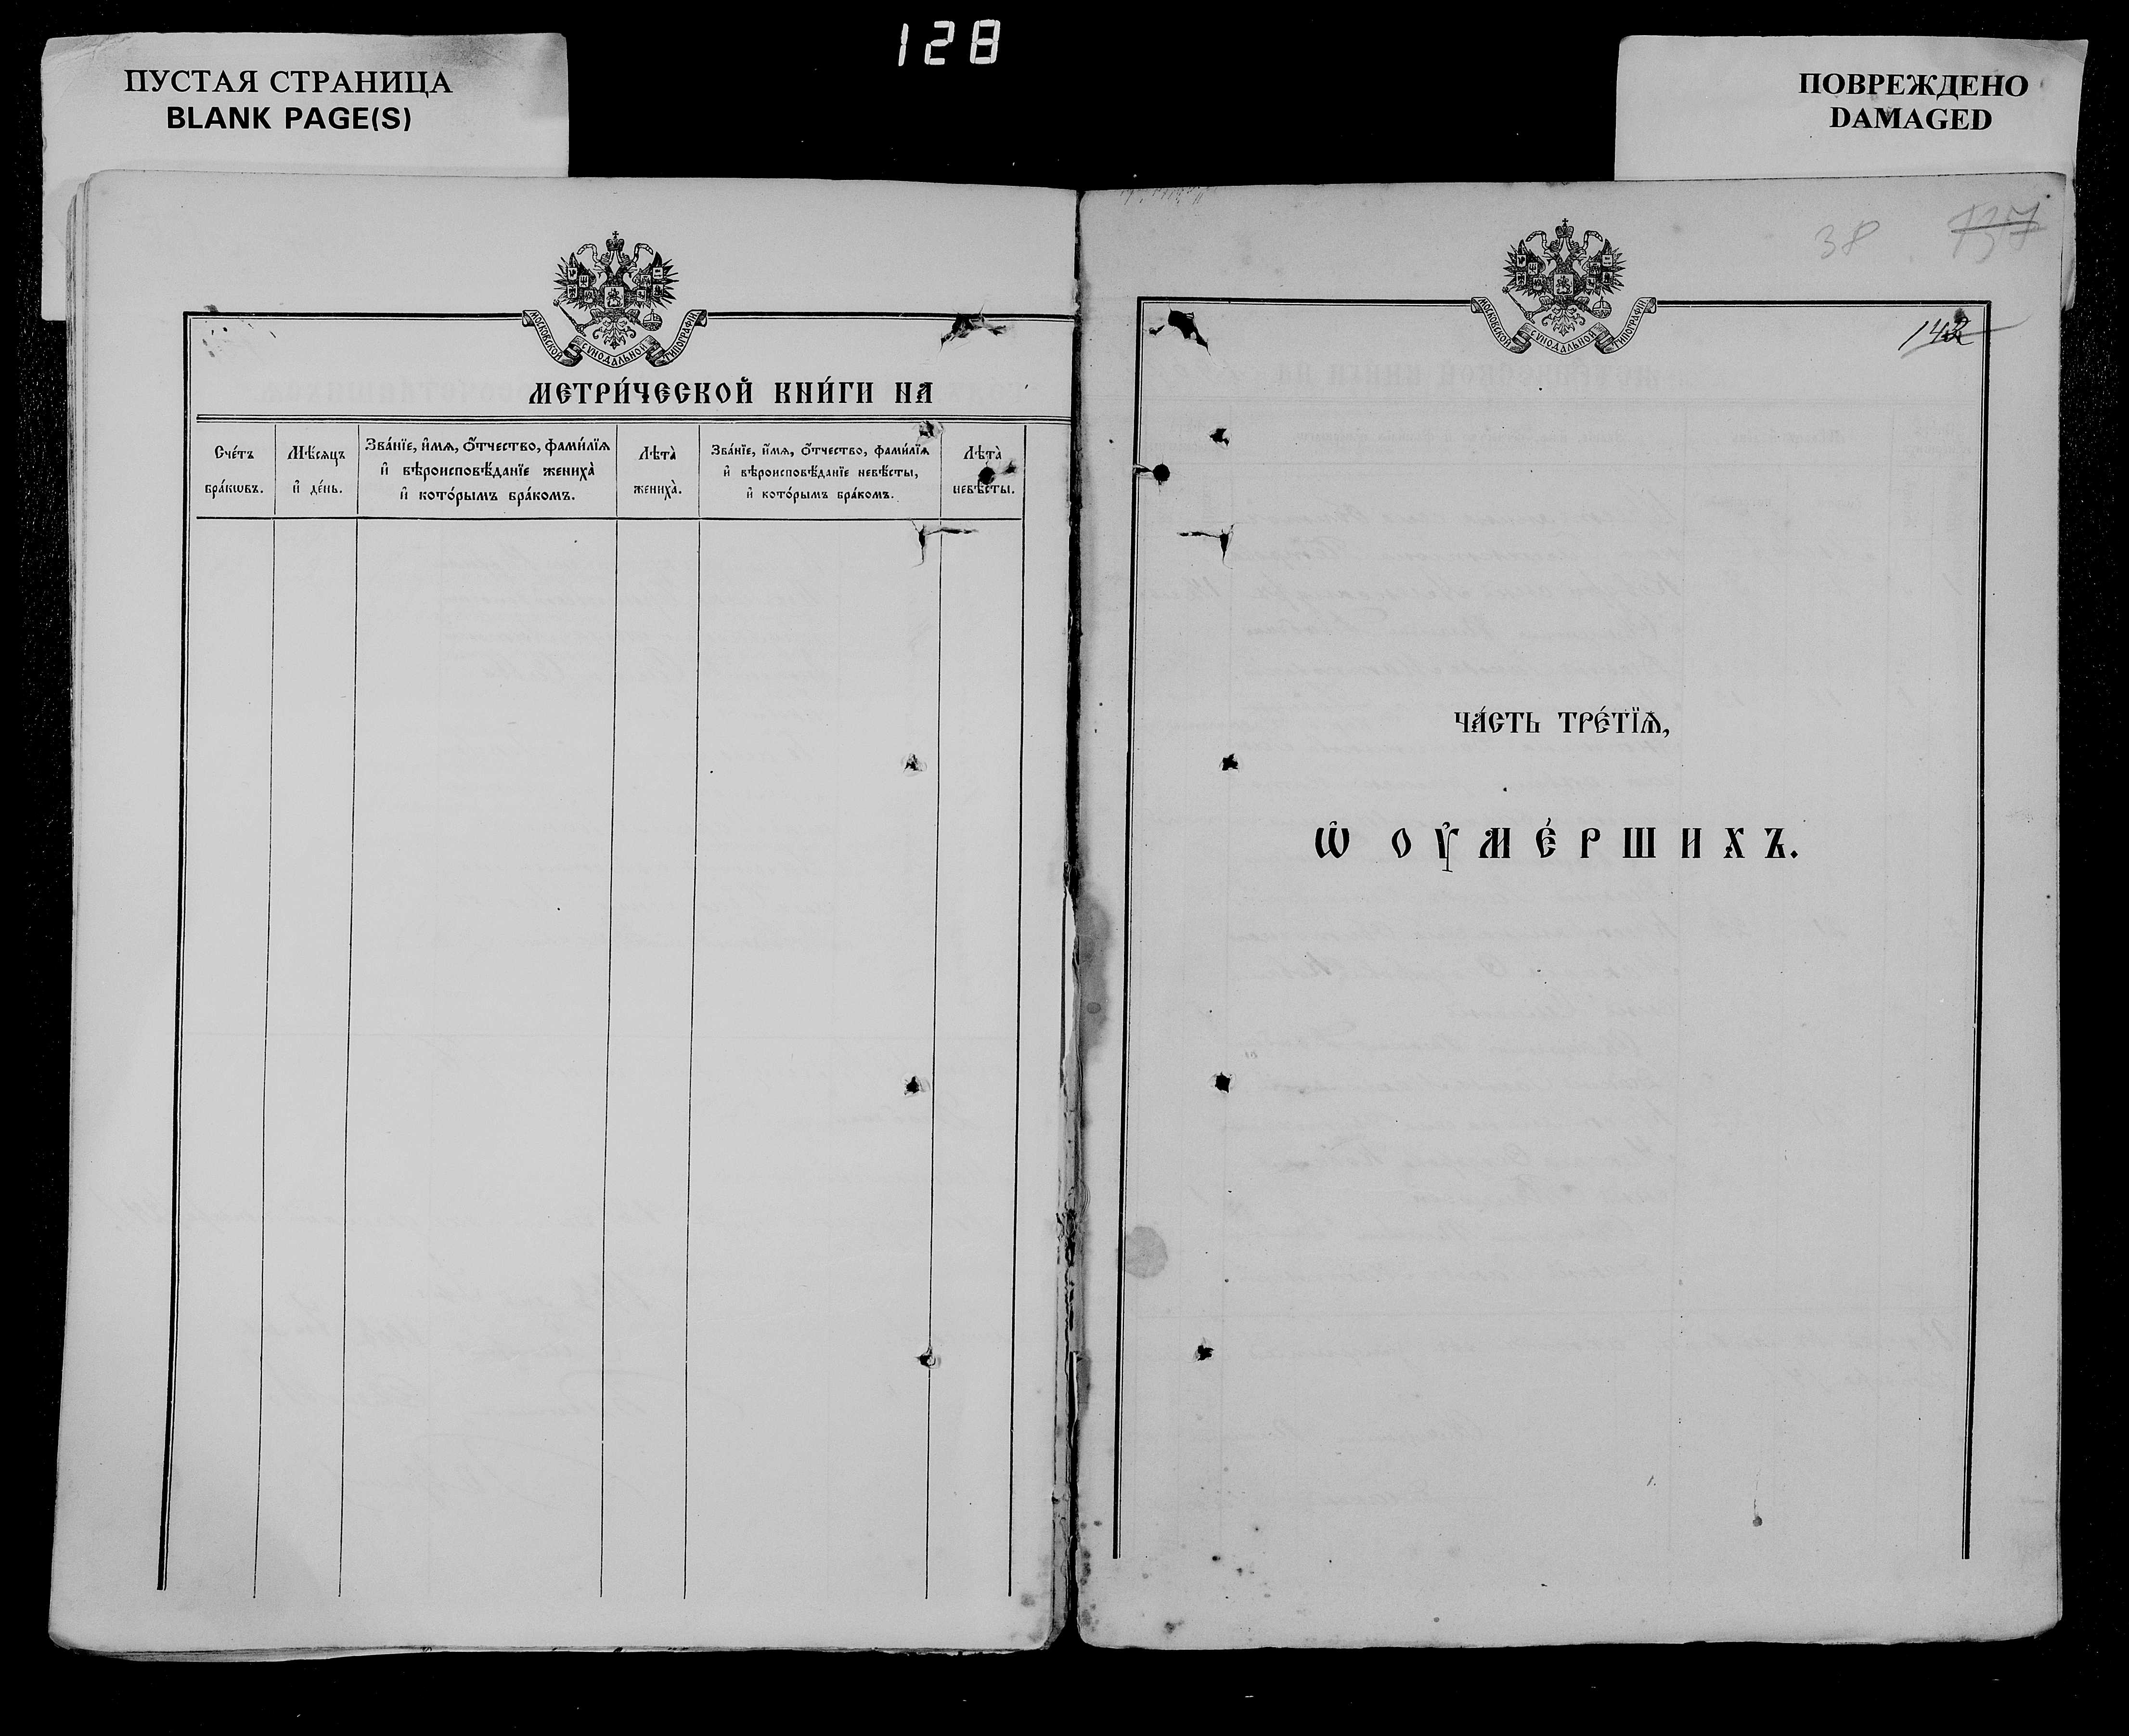 128
ПУСТАЯ СТРАНИЦА
BLANK PAGE(S)
ПОВРЕЖДЕНО
DAMAGED
МОСКОВСКОЙ СѴНОДАЛЬНОЙ ТИПОГРАФІИ
МЕТРИ́ЧЕСКОЙ КНИ́ГИ НА
Сче́тъ бра́кѡвъ.
Мѣ́сяцъ и҆ де́нь.
Зва́нїе, и҆́мѧ, ѻ҆́тчество, фами́лїѧ
и҆ вѣроисповѣ́данїе жениха̀
и҆ кото́рымъ бра́комъ.
Лѣта̀ жениха̀.
Зва́нїе, и҆́мѧ, ѻ҆́тчество, фами́лїѧ
и҆ вѣроисповѣ́данїе невѣ́сты,
и҆ кото́рымъ бра́комъ.
Лѣта̀ невѣ́сты.
38
137
МОСКОВСКОЙ СѴНОДАЛЬНОЙ ТИПОГРАФІИ
ЧА́СТЬ ТРЕ́ТЇѦ,
Ѡ҆ ОУ҆МЕ́РШИХЪ.